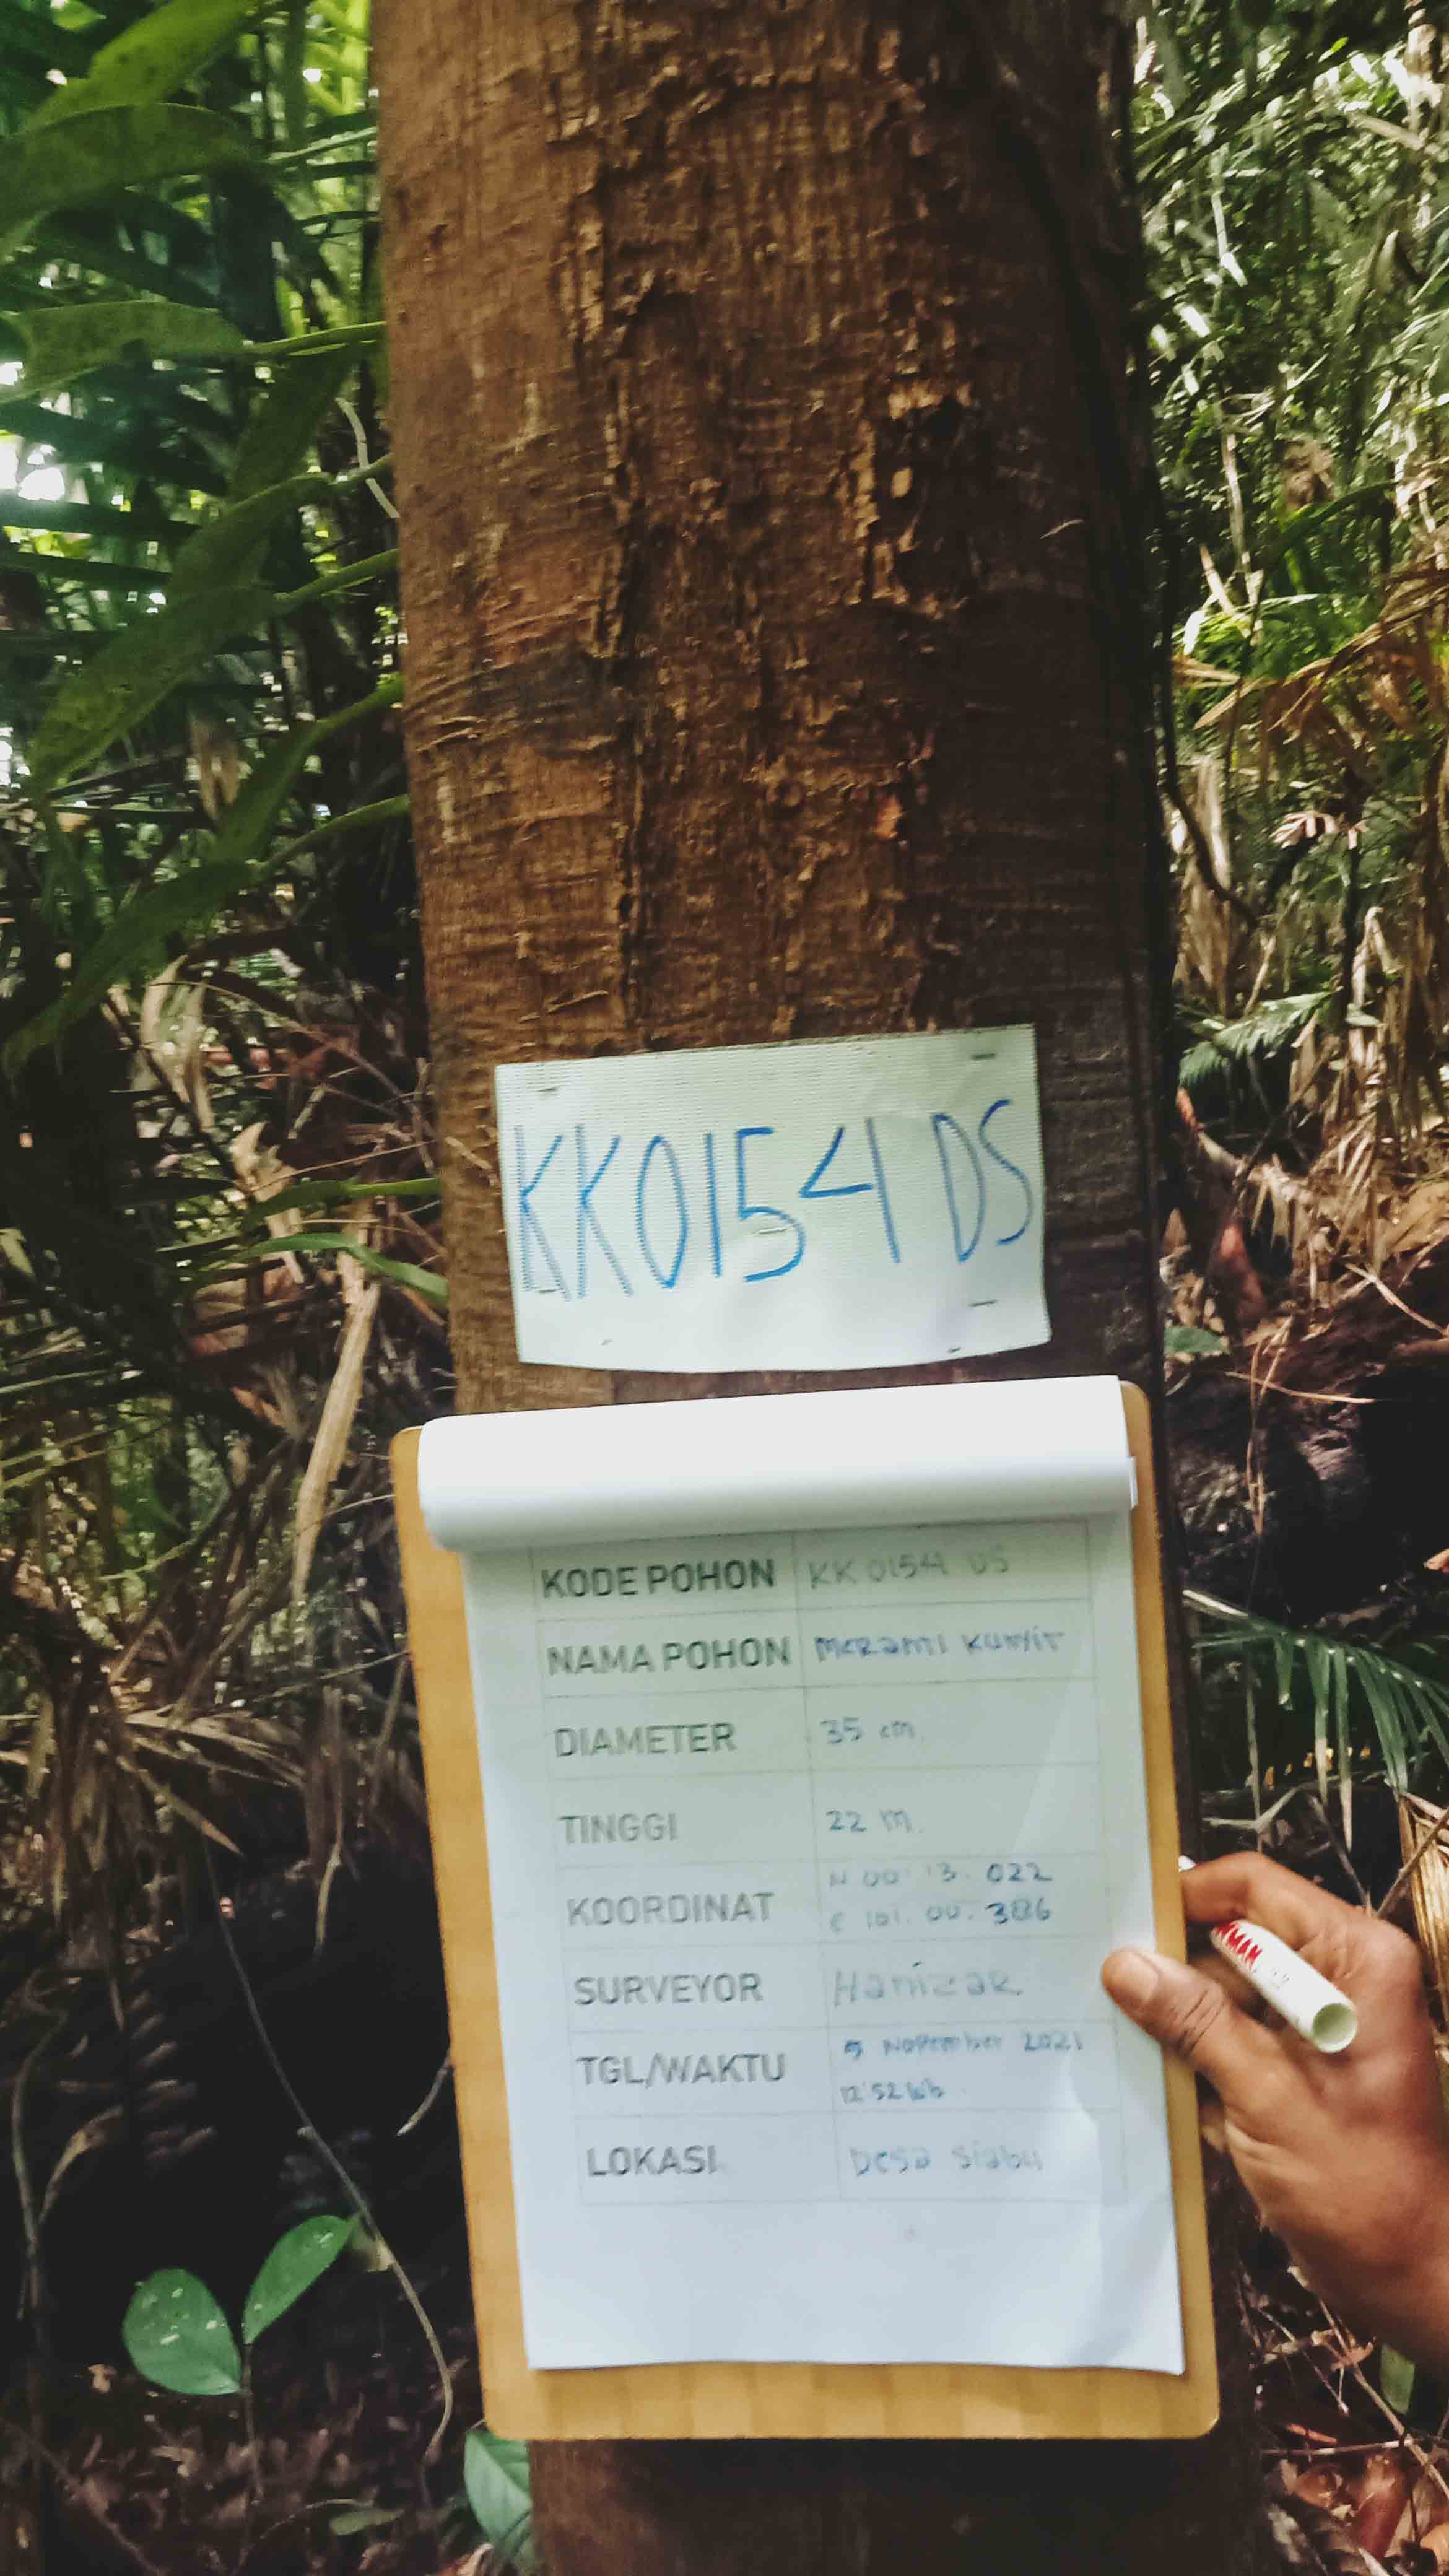 KK0154 DS
KODE POHON KK 0154 DS
NAMA POHON MERANTI KUNYIT
DIAMETER 35 cm.
TINGGI 22 m.
KOORDINAT N 00 13. 022
E 101. 00. 386
SURVEYOR Hanizar.
TGL/WAKTU 5 November 2021
12:52 wib
LOKASI Desa Siabu